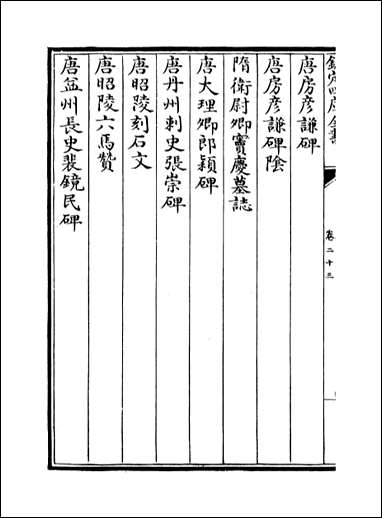 欽定四庫全書
卷二十三
唐房彦謙碑
唐房彦謙碑隂
隋衛尉卿竇慶墓誌
唐大理卿郎穎碑
唐丹州刺史張崇碑
唐昭陵刻石文
唐昭陵六馬贊
唐益州長史裴鏡民碑